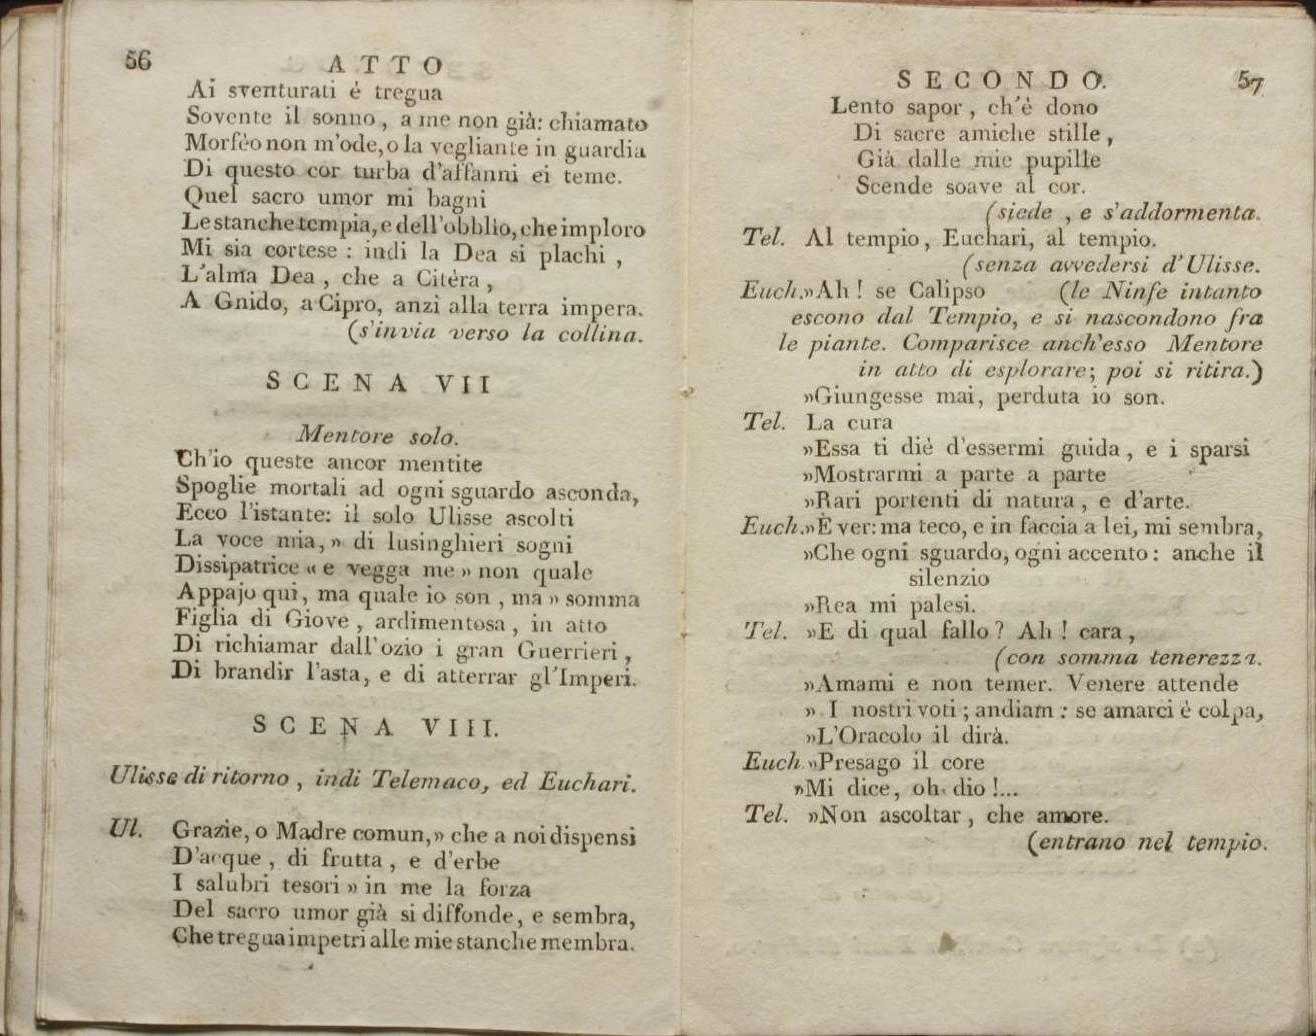 56
ATTO
Ai sventurati è tregua
Sovente il sonno, a me non già: chiamato
Morfèo non m'ode, o la vegliante in guardia
Di questo cor turba d'affanni ei teme.
Quel sacro umor mi bagni
Le stanche tempia, e dell'obblìo, che imploro
Mi sia cortese: indi la Dea si plachi,
L'alma Dea, che a Citèra,
A Gnido, a Cipro, anzi alla terra impera.
(s'invia verso la collina.
SCENA VII
Mentore solo.
Ch'io queste ancor mentite
Spoglie mortali ad ogni sguardo asconda,
Ecco l'istante: il solo Ulisse ascolti
La voce mia, » di lusinghieri sogni
Dissipatrice « e vegga me » non quale
Appajo qui, ma quale io son, ma » somma
Figlia di Giove, ardimentosa, in atto
Di richiamar dall'ozio i gran Guerrieri,
Di brandir l'asta, e di atterrar gl'Imperi.
SCENA VIII.
Ulisse di ritorno, indi Telemaco, ed Euchari.
Ul. Grazie, o Madre comun, » che a noi dispensi
D'acque, di frutta, e d'erbe
I salubri tesori » in me la forza
Del sacro umor già si diffonde, e sembra,
Che tregua impetri alle mie stanche membra.
SECONDO.
57
Lento sapor, ch'è dono
Di sacre amiche stille,
Già dalle mie pupille
Scende soave al cor.
(siede, e s'addormenta.
Tel. Al tempio, Euchari, al tempio.
(senza avvedersi d'Ulisse.
Euch. »Ah! se Calipso (le Ninfe intanto
escono dal Tempio, e si nascondono fra
le piante. Comparisce anch'esso Mentore
in atto di esplorare; poi si ritira.)
»Giungesse mai, perduta io son.
Tel. La cura
»Essa ti diè d'essermi guida, e i sparsi
»Mostrarmi a parte a parte
»Rari portenti di natura, e d'arte.
Euch. »È ver: ma teco, e in faccia a lei, mi sembra,
»Che ogni sguardo, ogni accento: anche il
silenzio
»Rea mi palesi.
Tel. »E di qual fallo? Ah! cara,
(con somma tenerezza.
»Amami e non temer. Venere attende
» I nostri voti; andiam: se amarci è colpa,
»L'Oracolo il dirà.
Euch. »Presago il core
»Mi dice, oh dio!...
Tel. »Non ascoltar, che amore.
(entrano nel tempio.